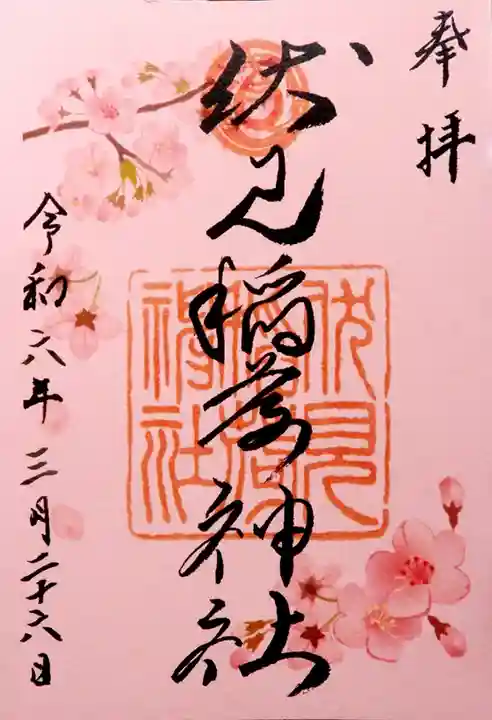 奉拝
伏見稲荷神社
伏見
稲荷
神社
令和六年三月二十六日